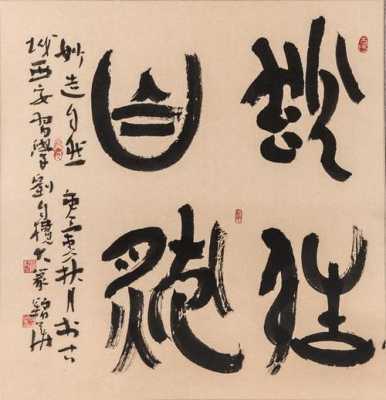 妙造
自然
妙造自然 秋月书古
城西安習學劉自櫝大篆